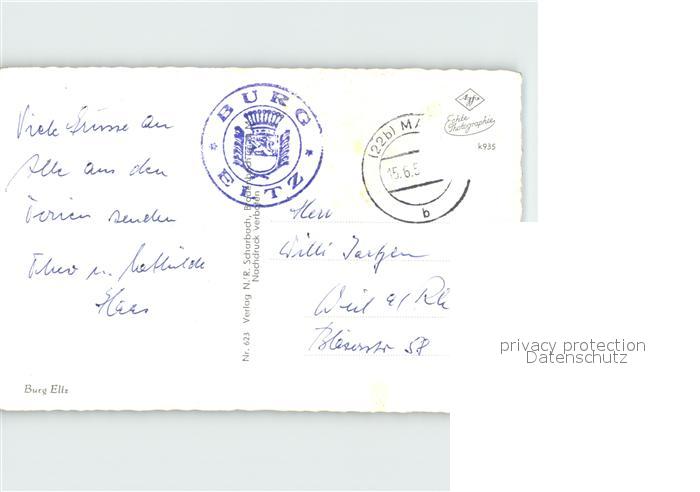 Viele Grüsse an
Alle aus den
Ferien senden
Theo u. Mathilde
Haas
Burg Eltz
BURG
ELTZ
Nr. 623 Verlag N./R. Scharbach, 
Nachdruck verboten
(22b) MA
15.6.5
b
Agfa
Echte
Photographie
k935
Herr
Willi
Weil a/ Rh
Bläserstr 58
privacy protection
Datenschutz